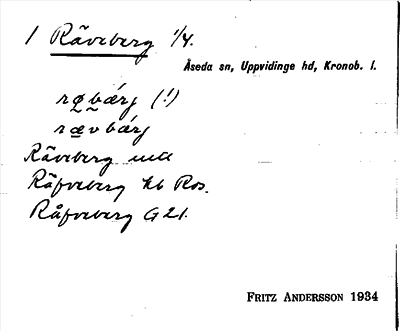 1 Räveberg 1/4.
Åseda sn, Uppvidinge hd, Kronob. l.
rø̨bærj (!)
rævbærj
Räveberg uttal
Räfveberg kb Ros.
Råfveberg G21.
FRITZ ANDERSSON 1934